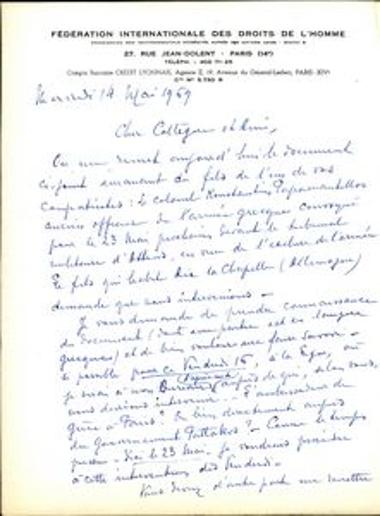 FÉDÉRATION INTERNATIONALE DES DROITS DE L'HOMME
27, RUE JEAN-DOLENT - PARIS (14e)
TÉLÉPH. :
Compte Bancaire CRÉDIT LYONNAIS, Agence Z, 19, Avenue du Général-Leclerc, PARIS-XIVe
Mercredi 14 Mai 1969
Cher Collègue et Ami,
On me remet aujourd'hui le document
ci-joint émanant du fils de l'un de vos
compatriotes : le colonel Konstantin
ancien officier de l'armée grecque convoqué
pour le 23 Mai prochain devant le tribunal
militaire d'Athènes, en vue de l'
Le fils qui habite Aix la Chapelle (Allemagne)
demande que nous intervenions -
Je vous demande de prendre connaissance
du document (dont une partie est en langue
grecque) et de bien vouloir me faire savoir -
si possible pour ce Vendredi 16, à la Ligue, où
je serai à nos Bureaux auprès de qui, selon vous,
nous devrions intervenir - L'ambassadeur de
Grèce à Paris? Ou bien directement auprès
du Gouvernement Pattakos? - Comme le temps
presse - d'ici le 23 Mai - je voudrais procéder
à cette intervention dès Vendredi -
d'autre part me